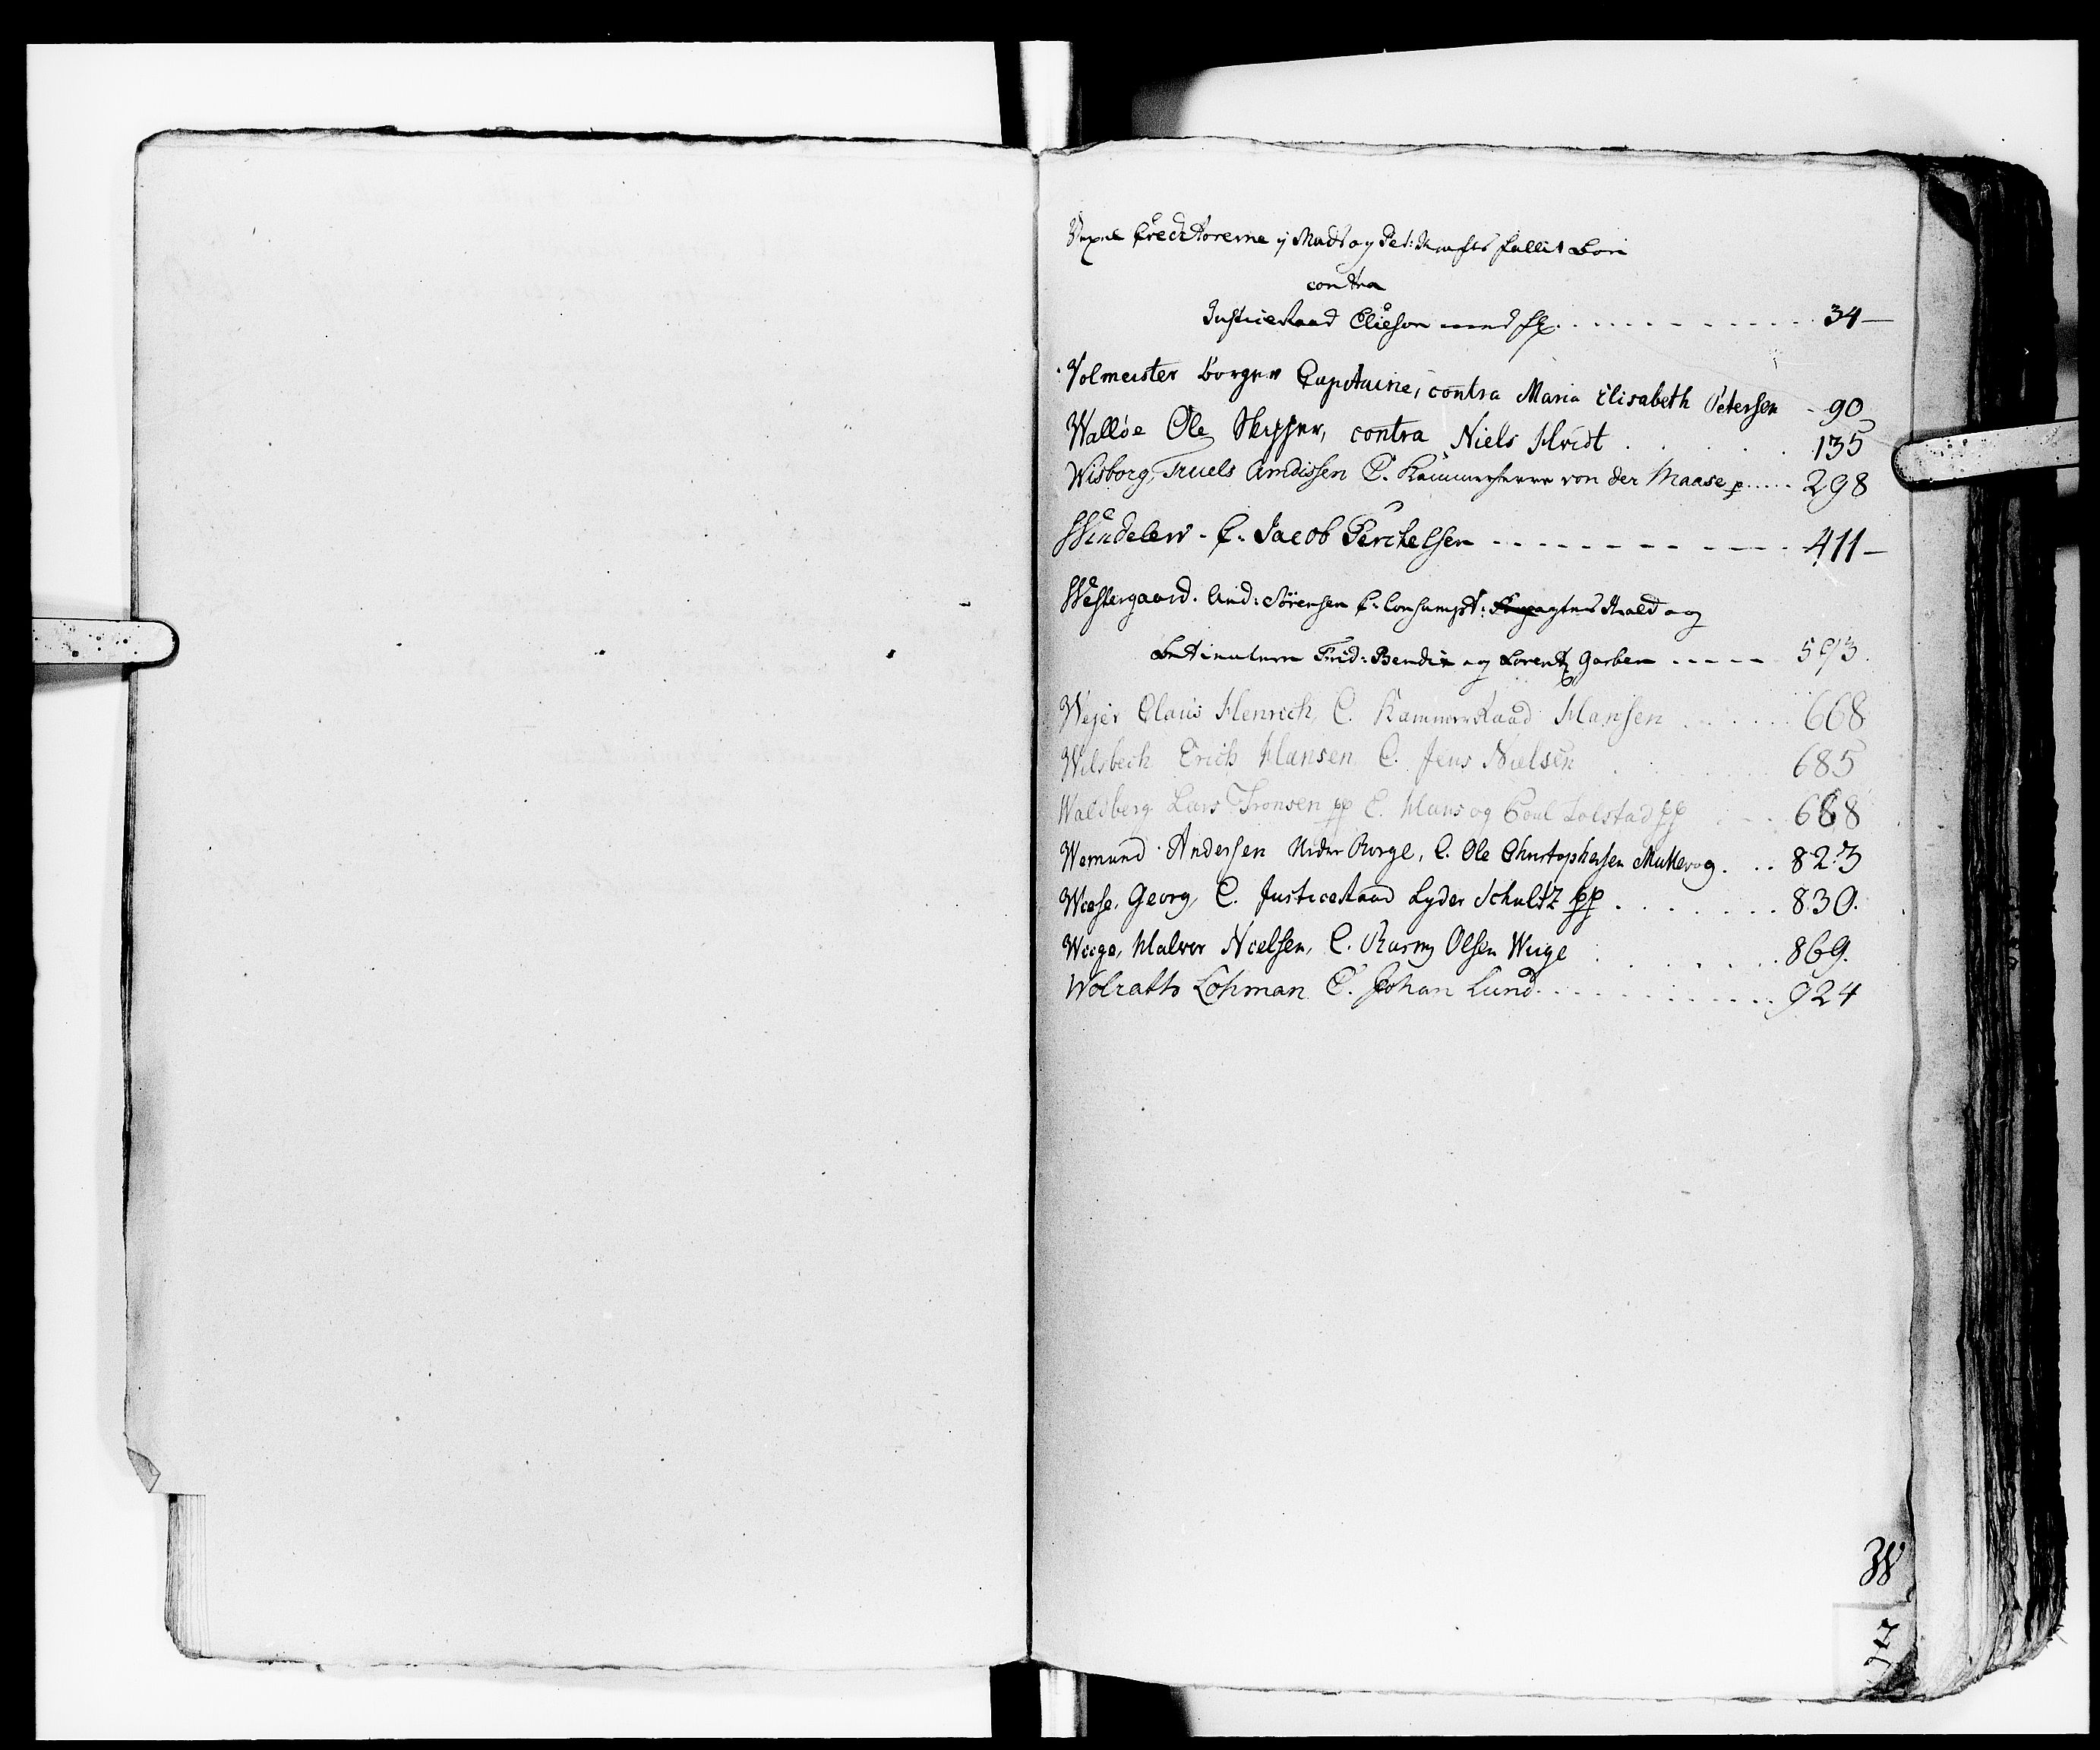 Creditorerne i Mads og Pet: fallit Boe
contra
Justice Raad Elieson med fl. 34
Volmeister Borger Capitaine, contra Maria Elisabeth Petersen 90
Walløe Ole Skipper, contra Niels Hvidt 135
Wisborg, Truels Arndissen C. Kammerherre von der Maase p 298
Windeler C. Jacob Perchelsen 411
Westergaard. And: Sørensen C. Consumpt: og
Frid: Bendix og Lorentz Garben 593
Wejer Claus Henrich, C. Kammer Raad Hansen 668
Wilsbech Erich Hansen C. Jens Nielsen 685
Waldberg Lars Tronsen pp C. Hans og Poul Lolstad pp 688
Wemund Andersen Neder Borge, C. Ole Christophersen Mukkevog 823
Wiese, Georg, C. Justice Raad Lyder Schultz pp 830.
Wiige, Halvor Nielsen, C. Rasm Olsen Wiige 869.
Wolrath Lohman C. Johan Lund 924
W